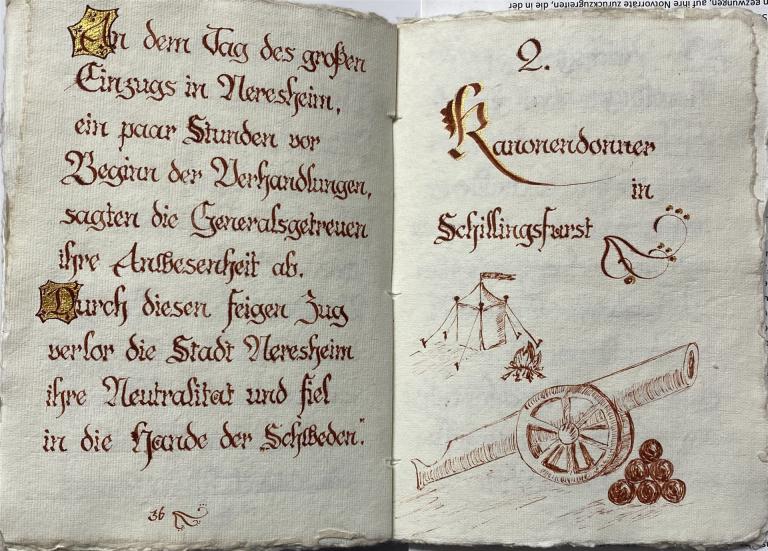 An dem Tag des großen
Einzugs in Neresheim,
ein paar Stunden vor
Beginn der Verhandlungen,
sagten die Generalsgetreuen
ihre Anwesenheit ab.
Durch diesen feigen Zug
verlor die Stadt Neresheim
ihre Neutralitat und fiel
in die Hande der „Schweden".
36
gezwungen, auf ihre Notvorräte zurückzugreifen, die in der
2.
Kanonendonner
in
Schillingsfurst